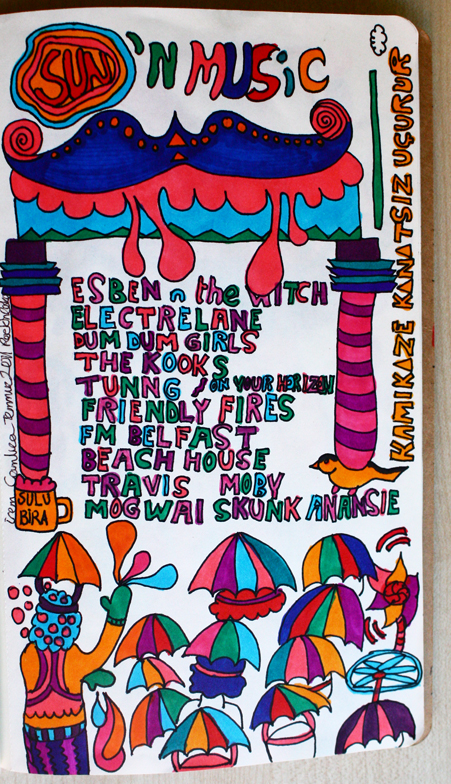 SUN 'N MUSiC
ESBEN n the WITCH
ELECTRELANE
DUM DUM GIRLS
THE KOOKS
TUNNG / ON YOUR HORIZON
FRIENDLY FIRES
FM BELFAST
BEACH HOUSE
TRAVIS MOBY
MOGWAI SKUNK ANANSIE
SULU
BiRA
KAMIKAZE KANATSIZ UÇURUR
Temmuz 2011